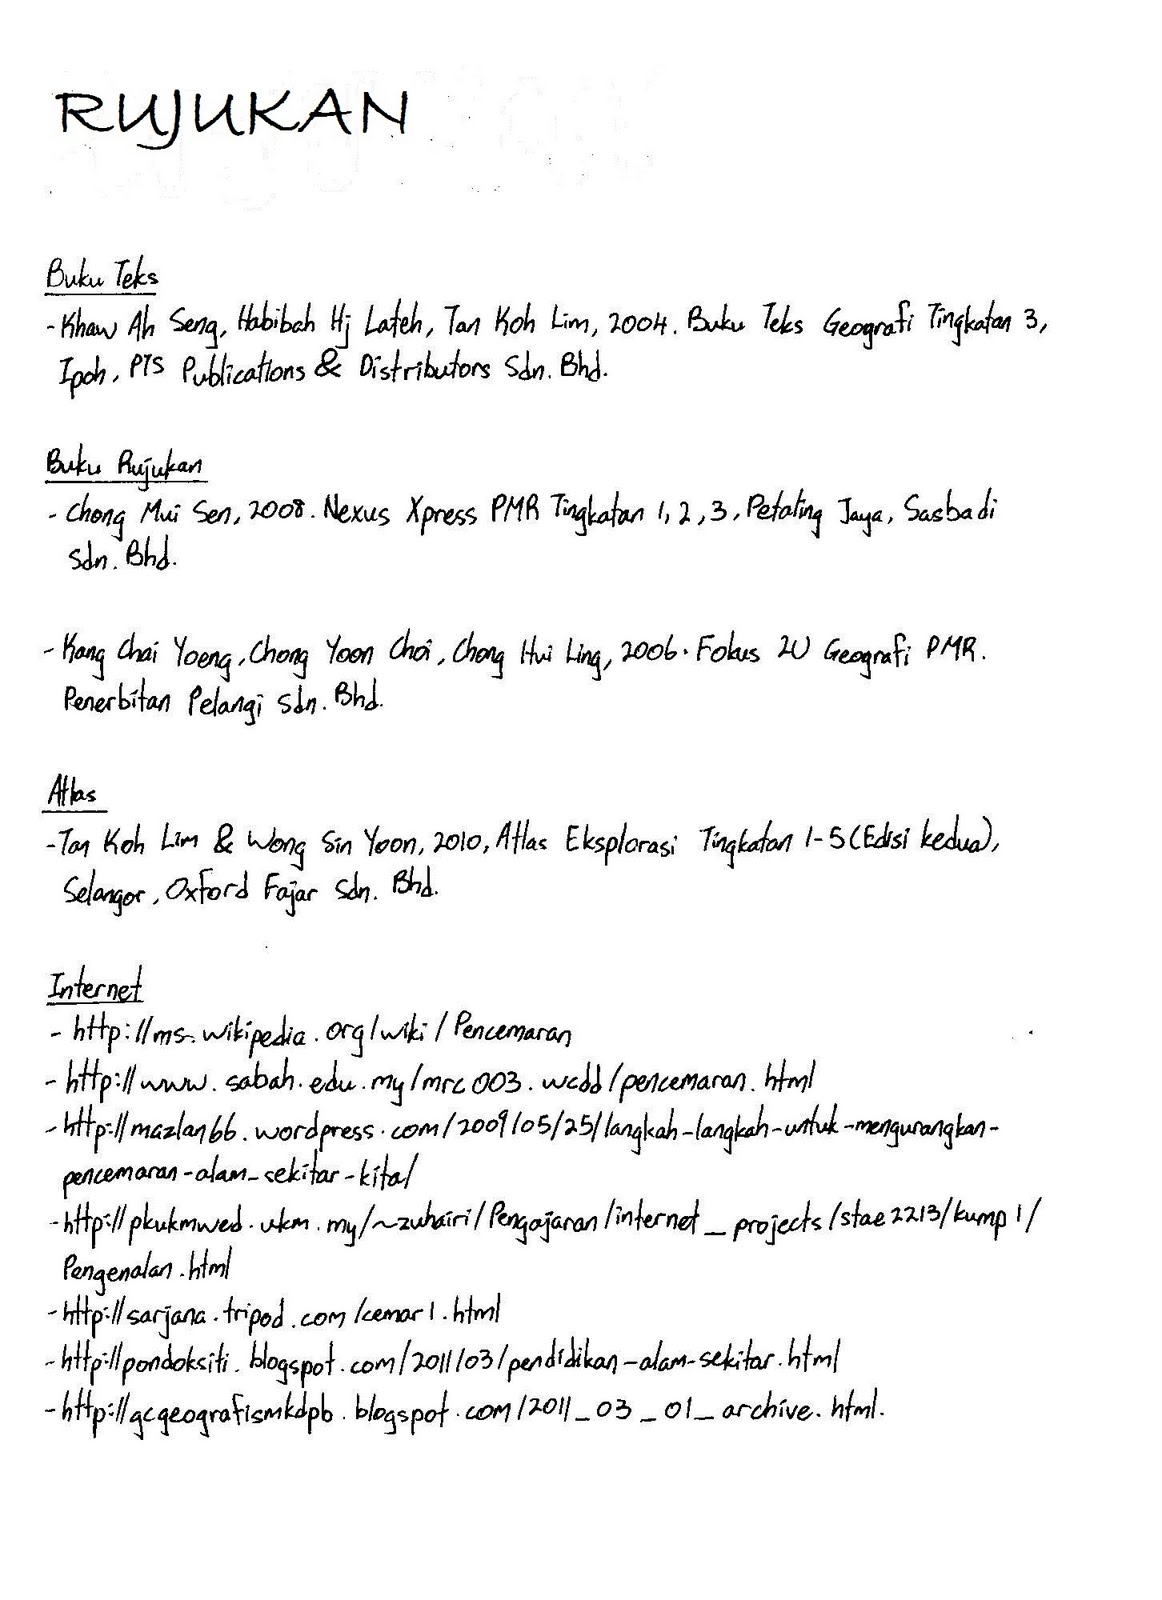 RUJUKAN
Buku Teks
- Khaw Ah Seng, Habibah Hj Lateh, Tan Koh Lim, 2004. Buku Teks Geografi Tingkatan 3,
Ipoh, PTS Publications & Distributors Sdn. Bhd.
Buku Rujukan
- Chong Mui Sen, 2008. Nexus Xpress PMR Tingkatan 1, 2, 3, Petaling Jaya, Sasbadi
Sdn. Bhd.
- Kang Chai Yoeng, Chong Yoon Choi, Chong Hui Ling, 2006. Fokus 2U Geografi PMR.
Penerbitan Pelangi Sdn. Bhd.
Atlas
- Tan Koh Lim & Wong Sin Yoon, 2010, Atlas Eksplorasi Tingkatan 1-5 (Edisi kedua),
Selangor, Oxford Fajar Sdn. Bhd.
Internet
- http://ms.wikipedia.org/wiki/Pencemaran
- http://www.sabah.edu.my/mrc003.wcdd/pencemaran.html
- http://mazlan66.wordpress.com/2009/05/25/langkah-langkah-untuk-mengurangkan-
pencemaran-alam-sekitar-kita/
- http://pkukmwed.ukm.my/~zuhairi/Pengajaran/internet_projects/stae2213/kump1/
Pengenalan.html
- http://sarjana.tripod.com/cemar1.html
- http://pondoksiti.blogspot.com/2011/03/pendidikan-alam-sekitar.html
- http://gcgeografismkdpb.blogspot.com/2011_03_01_archive.html.